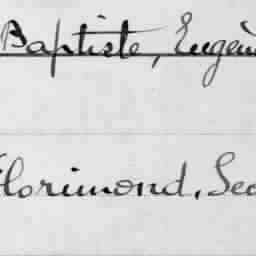 Baptiste, Eugèn
Florimond, Leo